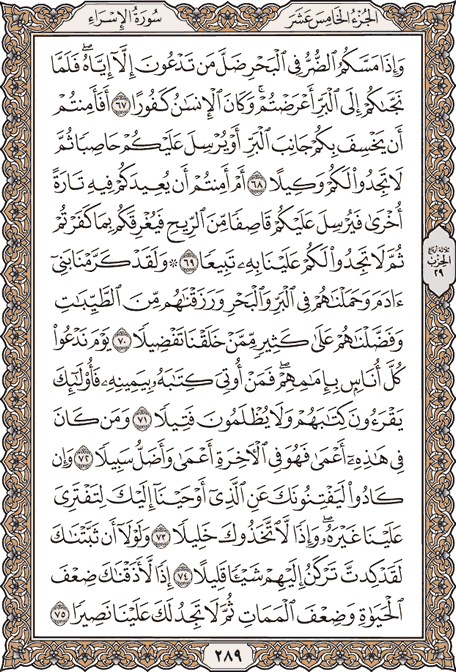 الجُزءُ الخَامِسَ عَشَرَ
سُورَةُ الإِسۡرَاءِ
وَإِذَا مَسَّكُمُ ٱلضُّرُّ فِي ٱلۡبَحۡرِ ضَلَّ مَن تَدۡعُونَ إِلَّآ إِيَّاهُۖ فَلَمَّا
نَجَّىٰكُمۡ إِلَى ٱلۡبَرِّ أَعۡرَضۡتُمۡۚ وَكَانَ ٱلۡإِنسَٰنُ كَفُورًا ٦٧ أَفَأَمِنتُمۡ
أَن يَخۡسِفَ بِكُمۡ جَانِبَ ٱلۡبَرِّ أَوۡ يُرۡسِلَ عَلَيۡكُمۡ حَاصِبٗا ثُمَّ
لَا تَجِدُواْ لَكُمۡ وَكِيلًا ٦٨ أَمۡ أَمِنتُمۡ أَن يُعِيدَكُمۡ فِيهِ تَارَةً
أُخۡرَىٰ فَيُرۡسِلَ عَلَيۡكُمۡ قَاصِفٗا مِّنَ ٱلرِّيحِ فَيُغۡرِقَكُم بِمَا كَفَرۡتُمۡ
ثُمَّ لَا تَجِدُواْ لَكُمۡ عَلَيۡنَا بِهِۦ تَبِيعٗا ٦٩ ۞ وَلَقَدۡ كَرَّمۡنَا بَنِيٓ
ءَادَمَ وَحَمَلۡنَٰهُمۡ فِي ٱلۡبَرِّ وَٱلۡبَحۡرِ وَرَزَقۡنَٰهُم مِّنَ ٱلطَّيِّبَٰتِ
وَفَضَّلۡنَٰهُمۡ عَلَىٰ كَثِيرٖ مِّمَّنۡ خَلَقۡنَا تَفۡضِيلٗا ٧٠ يَوۡمَ نَدۡعُواْ
كُلَّ أُنَاسِۭ بِإِمَٰمِهِمۡۖ فَمَنۡ أُوتِيَ كِتَٰبَهُۥ بِيَمِينِهِۦ فَأُوْلَٰٓئِكَ
يَقۡرَءُونَ كِتَٰبَهُمۡ وَلَا يُظۡلَمُونَ فَتِيلٗا ٧١ وَمَن كَانَ
فِي هَٰذِهِۦٓ أَعۡمَىٰ فَهُوَ فِي ٱلۡأٓخِرَةِ أَعۡمَىٰ وَأَضَلُّ سَبِيلٗا ٧٢ وَإِن
كَادُواْ لَيَفۡتِنُونَكَ عَنِ ٱلَّذِيٓ أَوۡحَيۡنَآ إِلَيۡكَ لِتَفۡتَرِيَ
عَلَيۡنَا غَيۡرَهُۥۖ وَإِذٗا لَّٱتَّخَذُوكَ خَلِيلٗا ٧٣ وَلَوۡلَآ أَن ثَبَّتۡنَٰكَ
لَقَدۡ كِدتَّ تَرۡكَنُ إِلَيۡهِمۡ شَيۡـٔٗا قَلِيلًا ٧٤ إِذٗا لَّأَذَقۡنَٰكَ ضِعۡفَ
ٱلۡحَيَوٰةِ وَضِعۡفَ ٱلۡمَمَاتِ ثُمَّ لَا تَجِدُ لَكَ عَلَيۡنَا نَصِيرٗا ٧٥
ثلاثة أرباع
الحزب
٢٩
٢٨٩